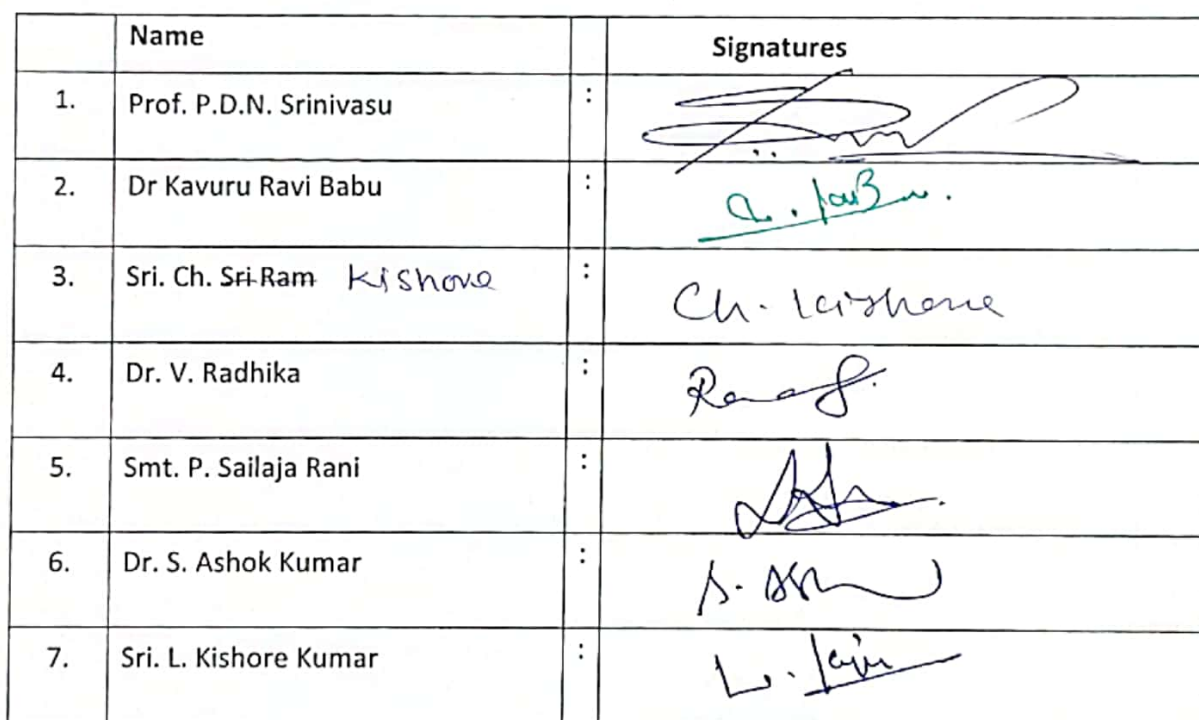 Name Signatures
1. Prof. P.D.N. Srinivasu :
2. Dr Kavuru Ravi Babu :
3. Sri. Ch. Sri Ram Kishore : Ch. Kishore
4. Dr. V. Radhika :
5. Smt. P. Sailaja Rani :
6. Dr. S. Ashok Kumar :
7. Sri. L. Kishore Kumar :